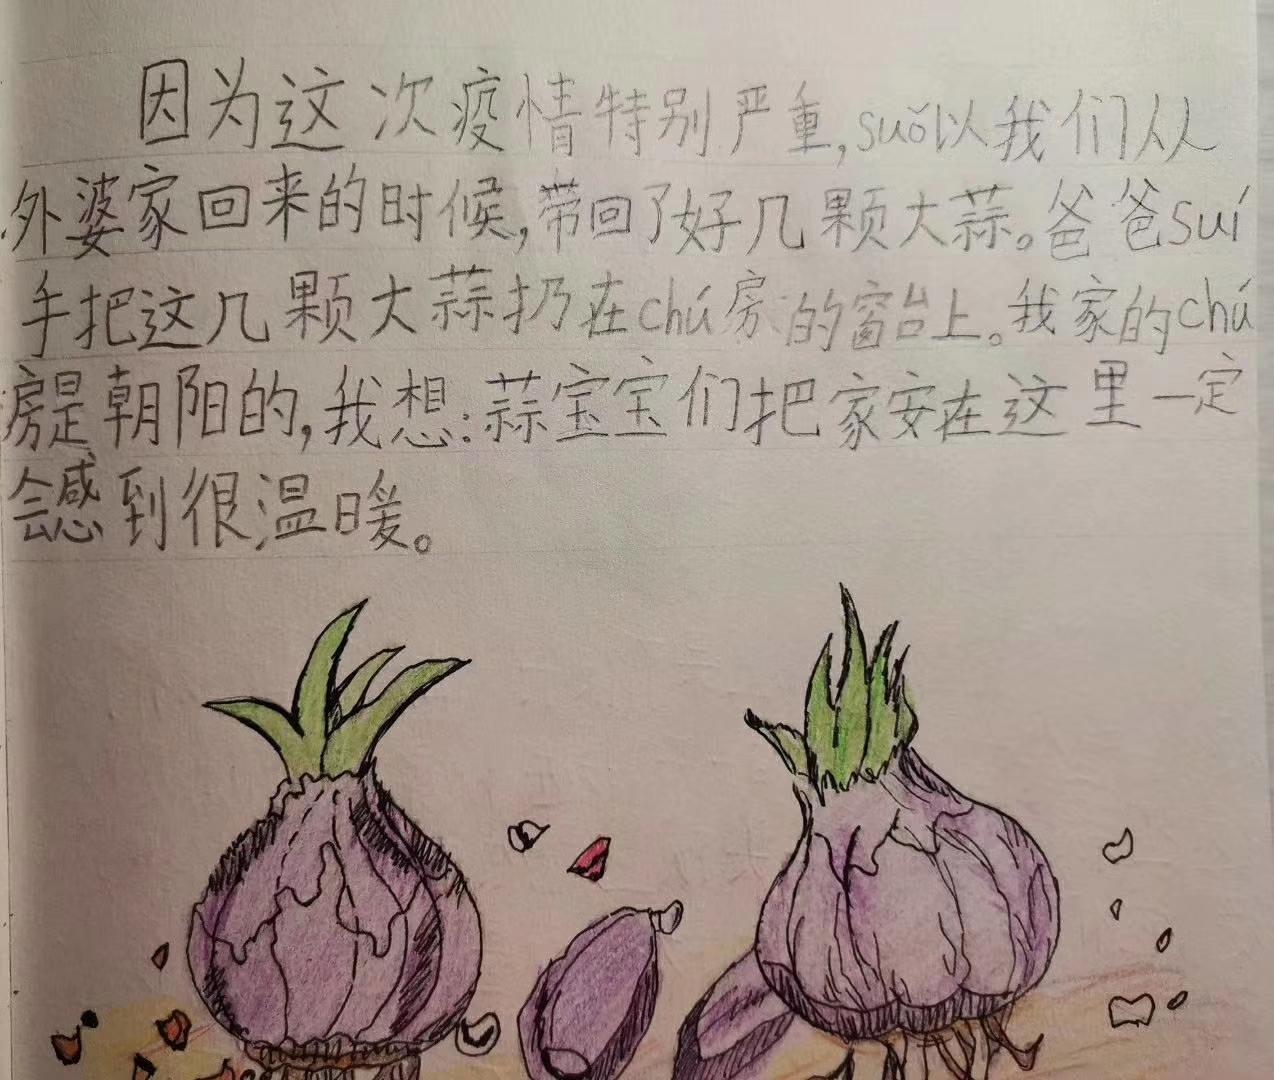 因为这次疫情特别严重,suǒ以我们从
外婆家回来的时候,带回了好几颗大蒜。爸爸suí
手把这几颗大蒜扔在chú房的窗台上。我家的chú
房是朝阳的,我想:蒜宝宝们把家安在这里一定
会感到很温暖。